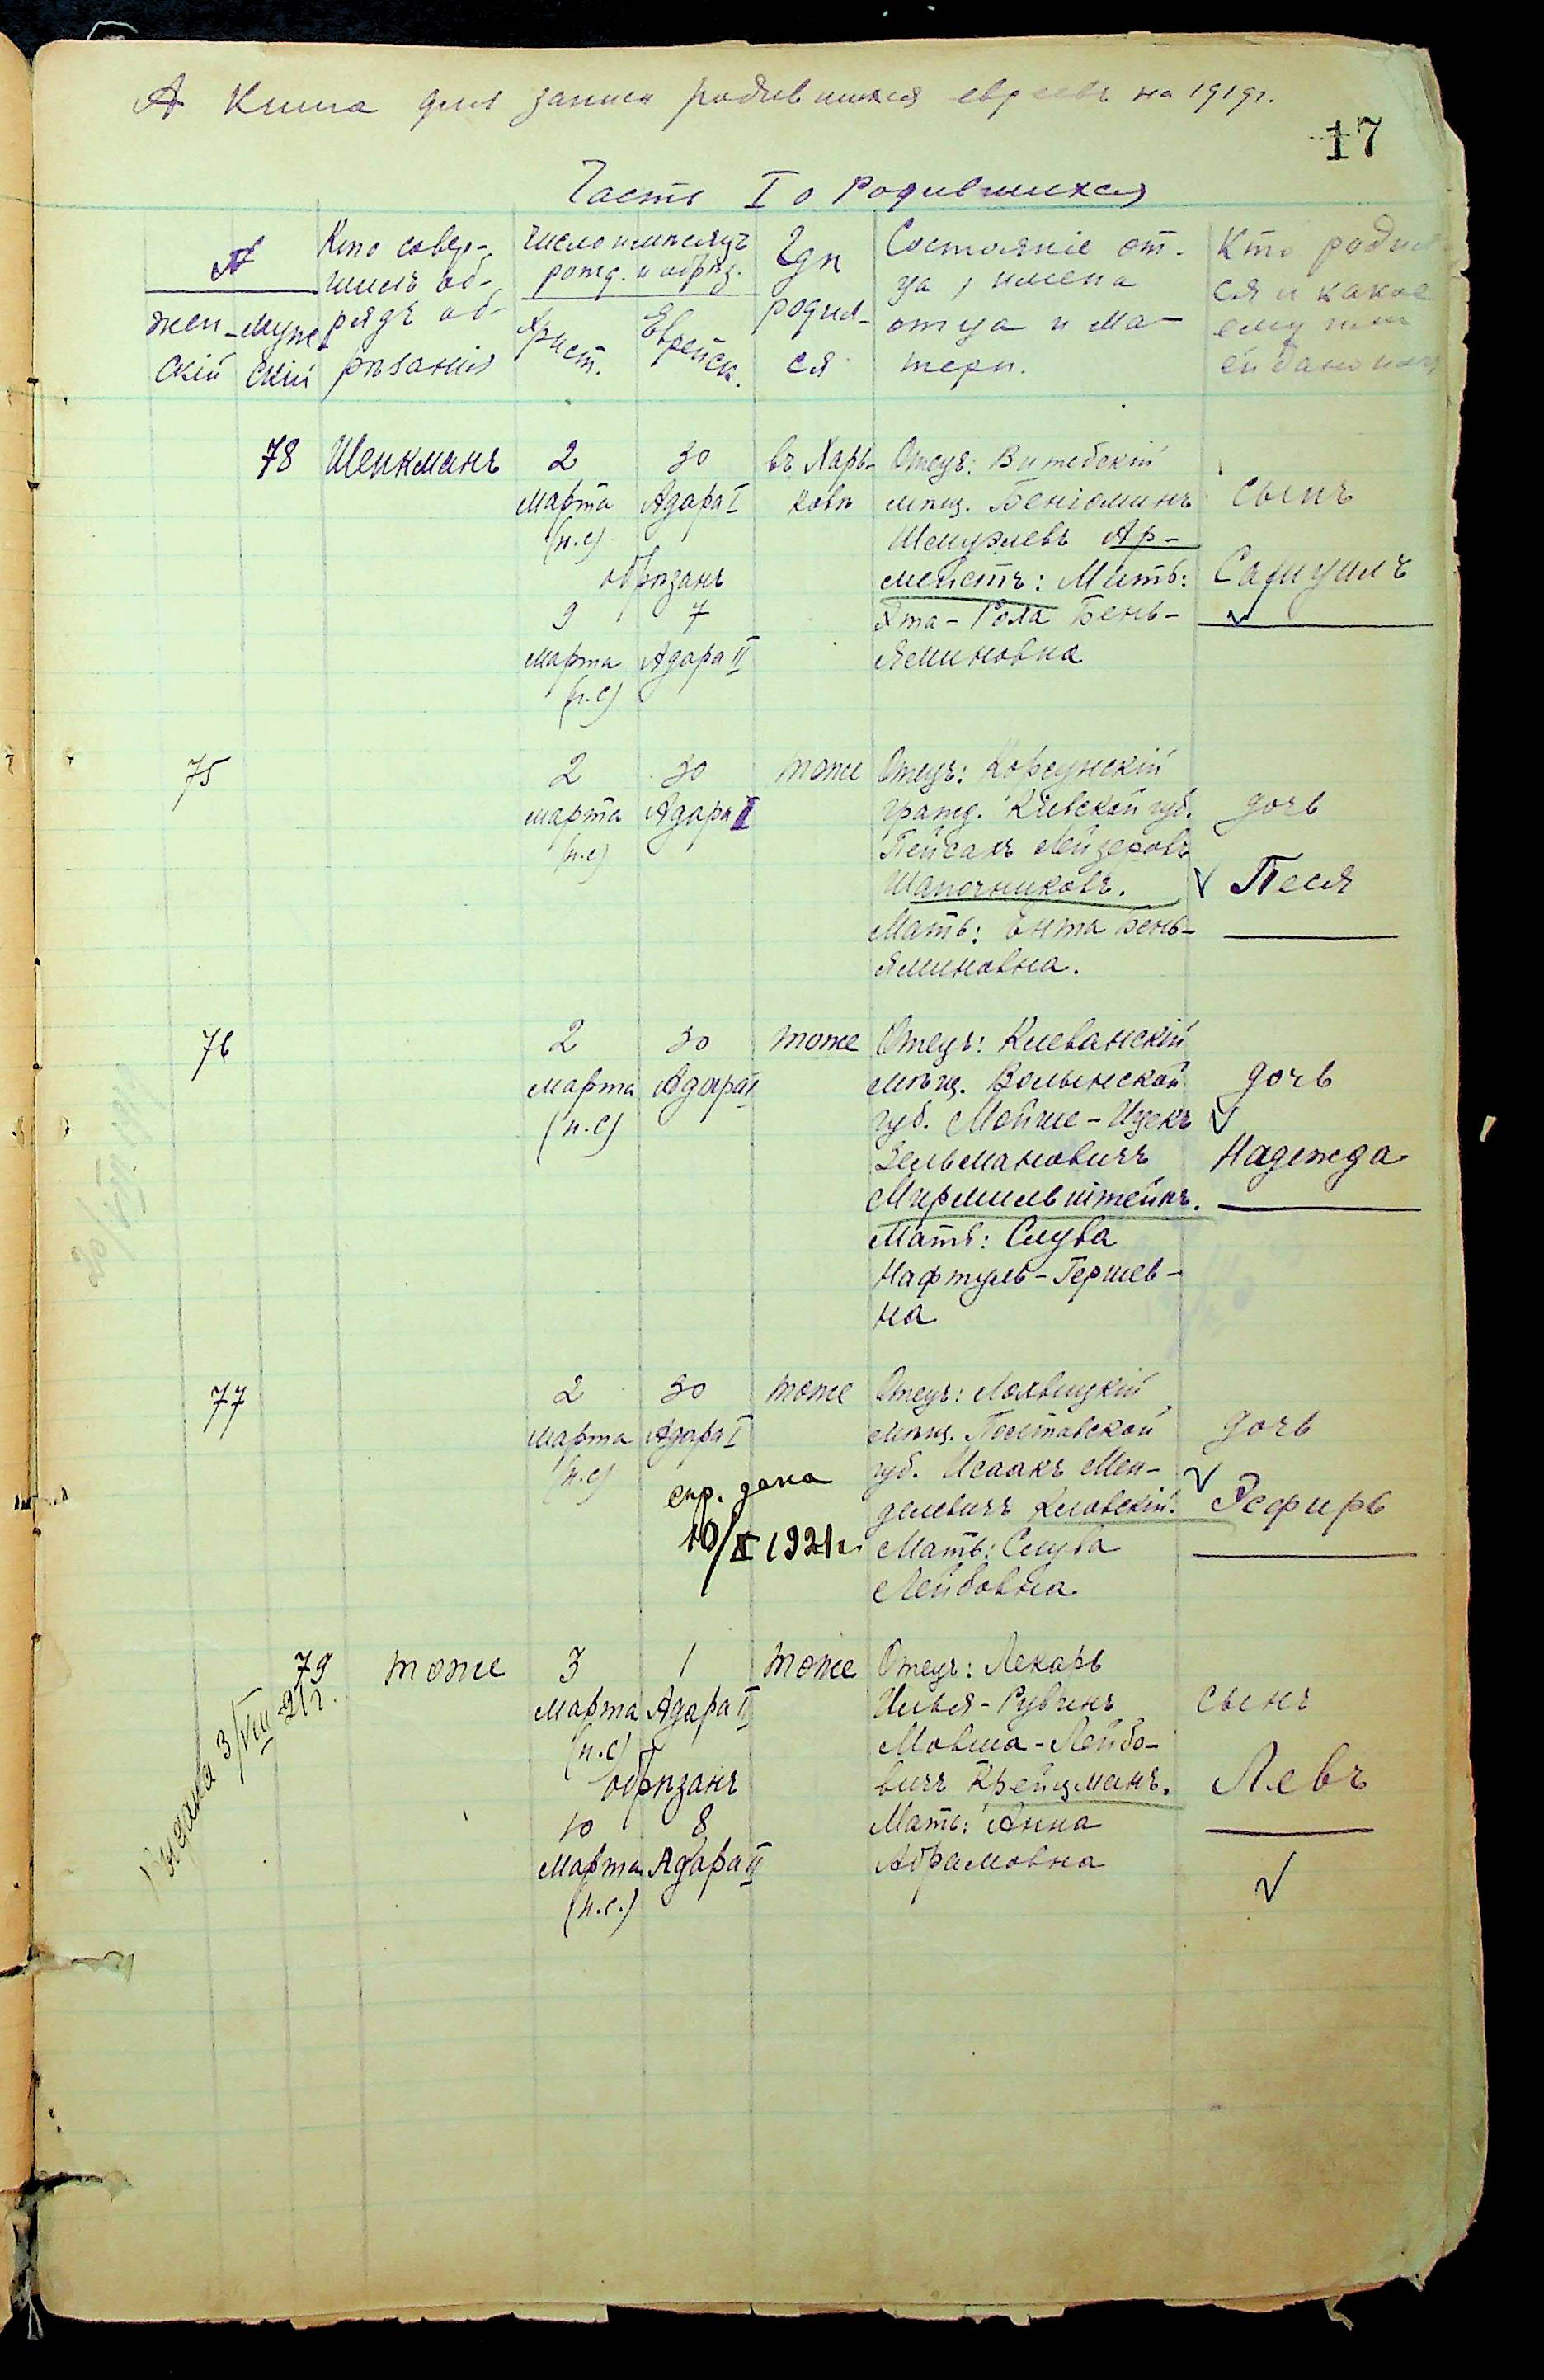 А Книга для записи родившихся евреевъ на 1919г.
17
Часть I о Родившихся
№
жен-скій
муж-скій
Кто совер-
шилъ об-
рядъ об-
рѣзанія
Число и мѣсяцъ
рожд. и обрѣз.
Христ.
Еврейск.
Гдѣ
родил-
ся
Состояніе от-
ца, имена
отца и Ма-
тери.
Кто родил
ся и какое
ему или
ей дано имя
78 Шенкманъ
2
Марта
(н.с)
30
Адара I
обрѣзанъ
9
Марта
(н.с)
7
Адара II
въ Харь-
ковѣ
Отецъ: Витебскій
мѣщ. Беніоминъ
Шмуэлевъ Ар-
: Мать:
Бень-
яминовна
сынъ
Самуилъ
75
2
Марта
(н.с)
30
Адара I
тоже
Отецъ: Корсунскій
гражд. Кіевской губ.
Пейсахъ Лейзеровъ
Шапочниковъ.
Мать: Ента Бень-
яминовна.
дочь
Песя
76
2
Марта
(н.с)
30
Адара I
тоже
Отецъ: Клеванскій
мѣщ. Волынской
губ. Мойше-Ицекъ
Зельмановичъ
Мирмильштейнъ.
Мать: Слува
Нафтуль-Гершев-
на
дочь
Надежда
77
2
Марта
(н.с)
30
Адара I
спр. дана
10/X 1921г.
тоже
Отецъ: Лохвицкій
мѣщ. Полтавской
губ. Исаакъ Мен-
делевичъ
Мать: Слува
Лейбовна
дочь
Эсфирь
79 тоже
выдана 3/VIII 21г.
3
Марта
(н.с)
1
Адара II
обрѣзанъ
10
Марта
(н.с.)
8
Адара II
тоже
Отецъ: Лекарь
Илья-Рувинъ
Мовша-Лейбо-
вичъ Крейцманъ.
Мать: Анна
Абрамовна
сынъ
Левъ